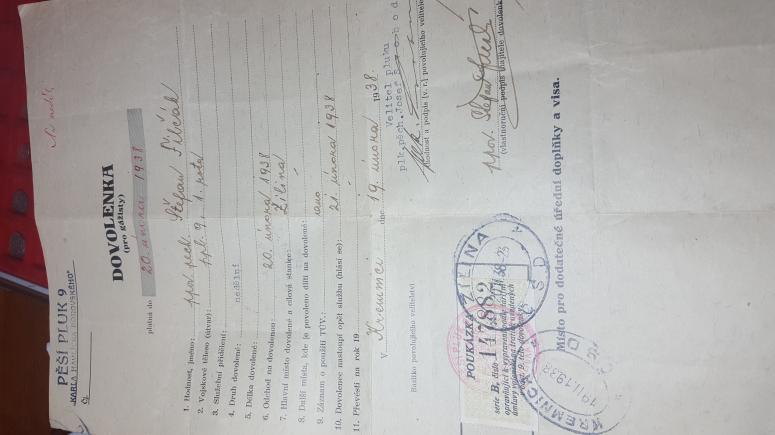 PĚŠÍ PLUK 9
„KARLA HAVLÍČKA BOROVSKÉHO“
Čj.
Na neděli
DOVOLENKA
(pro gážisty)
platná do 20. února 1938
1. Hodnost, jméno: ppor. pěch. Štefan
2. Vojskové těleso (útvar): ppl. 9, 1. rota
3. Služební přidělení:
4. Druh dovolené: nedělní
5. Délka dovolené:
6. Odchod na dovolenou: 20. února 1938
7. Hlavní místo dovolené a cílová stanice: Žilina
8. Další místa, kde je povoleno dlíti na dovolené:
9. Záznam o použití TÚV.: ráno
10. Dovolenec nastoupí opět službu (hlásí se): 21. února 1938
11. Převésti na rok 19
V Kremnici dne 19. února 1938.
Velitel pluku
plk. pěch. Josef
Razítko povolujícího velitelství
(hodnost a podpis [v. r.] povolujícího velitele)
ppor. Štefan
(vlastnoruční podpis majitele dovolenky)
POUKÁZKA
serie B, číslo 117882
ŽILINA
ČSD
KREMNICA
19.II.1938
Místo pro dodatečné úřední doplňky a visa.